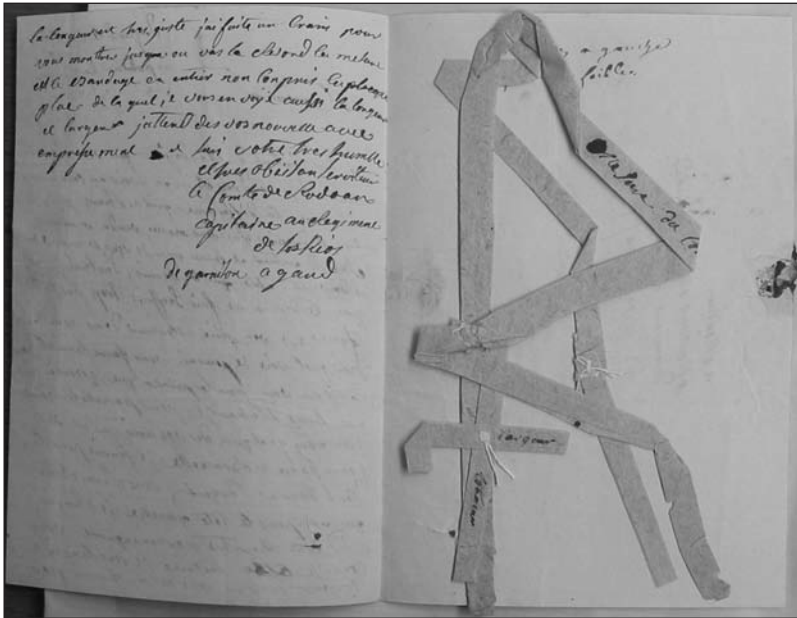 la longeur est tres juste jai faite un Crain pour
vous montrer jusque ou vas la
est le bandage en entier non Conpris la plaque
plac de la quel je vous en voyé aussi la longeur
et largeur jattent des vos nouvelle avec
empressement et suis votre tres humble
et tres obeisan serviteur
le Comte de Rodoan
capitaine au Regiment
de los Rios
de garnison a gand
a gauche
mesure du
largeur